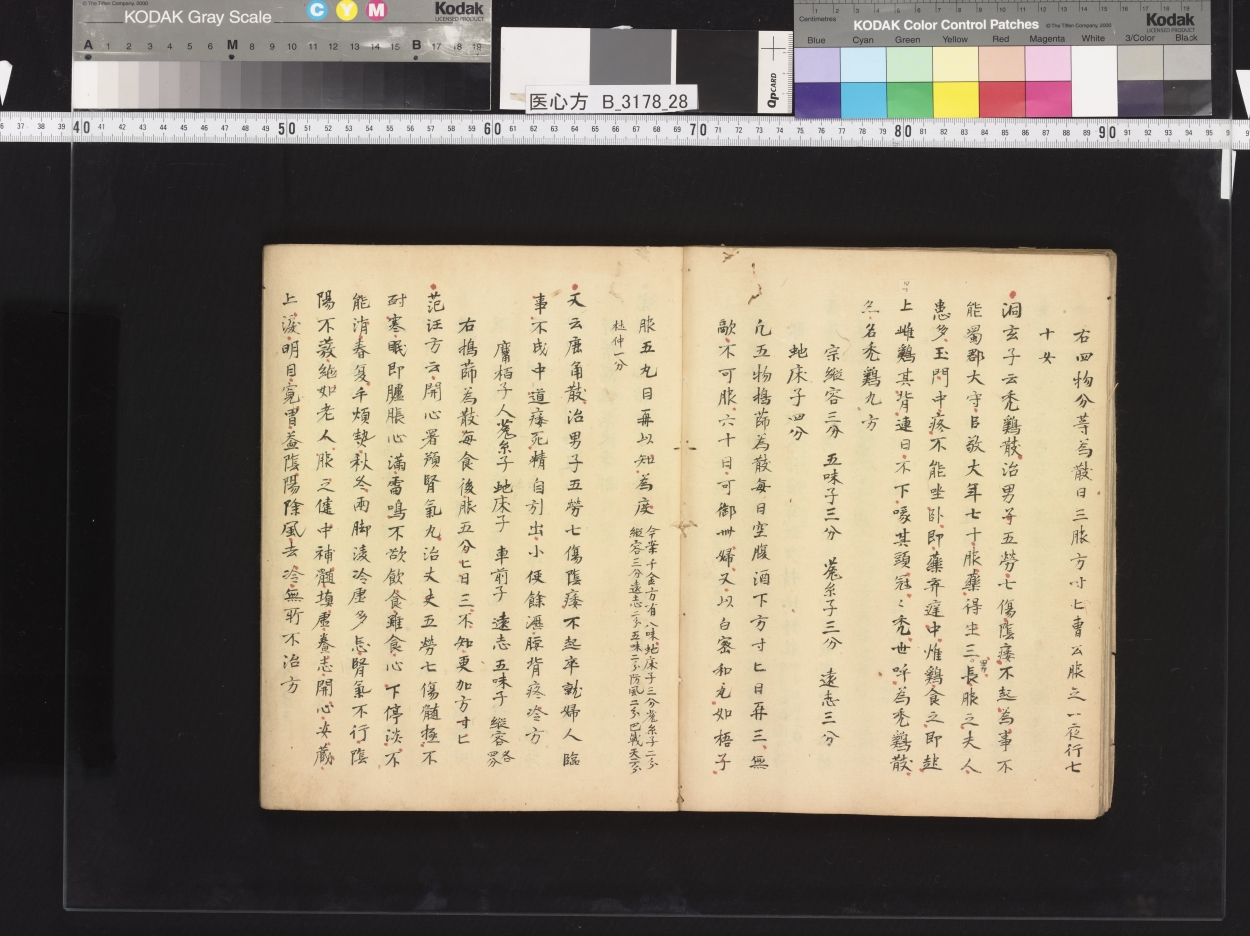 KODAK Gray Scale
C Y M
Kodak
LICENSED PRODUCT
© The Tiffen Company, 2000
A 1 2 3 4 5 6 M 8 9 10 11 12 13 14 15 B 17 18 19
医心方 B_3178_28
QPCARD
Centimetres
KODAK Color Control Patches
© The Tiffen Company, 2000
Kodak
LICENSED PRODUCT
Blue Cyan Green Yellow Red Magenta White 3/Color Black
右四物分等為散日三服方寸匕曹公服之一夜行七
十女
洞玄子云禿鷄散治男子五勞七傷陰痿不起為事不
能蜀郡大守呂敬大年七十服藥得生三男長服之夫人
患多玉門中疼不能坐卧即藥弃庭中雄鷄食之即起
上雌鷄其背連日不下喙其頭冠〻禿世呼為禿鷄散
亦名禿鷄丸方
宗縱容三分 五味子三分 菟糸子三分 遠志三分
地床子四分
凡五物搗篩為散每日空腹酒下方寸匕日再三無
敵不可服六十日可御卌婦又以白蜜和丸如梧子
服五丸日再以知為度
今案千金方有八味地床子三分菟糸子二分
縱容三分遠志二分五味二分防風二分巴戟天二分
杜仲一分
又云鹿角散治男子五勞七傷陰痿不起卒就婦人臨
事不成中道痿死精自引出小便餘瀝腰背疼冷方
鹿角 栢子人 菟糸子 地床子 車前子 遠志 五味子 縱容 各四分
右搗篩為散每食後服五分匕日三不知更加方寸匕
范汪方云開心署預腎氣丸治丈夫五勞七傷髓極不
耐寒眠即臚脹心滿雷鳴不欲飲食雖食心下停淡不
能消春夏手煩熱秋冬兩脚凌冷虛多忘腎氣不行陰
陽不發絕如老人服之健中補髓填虛養志開心安藏
止淚明目寬胃益陰陽除風去冷無所不治方